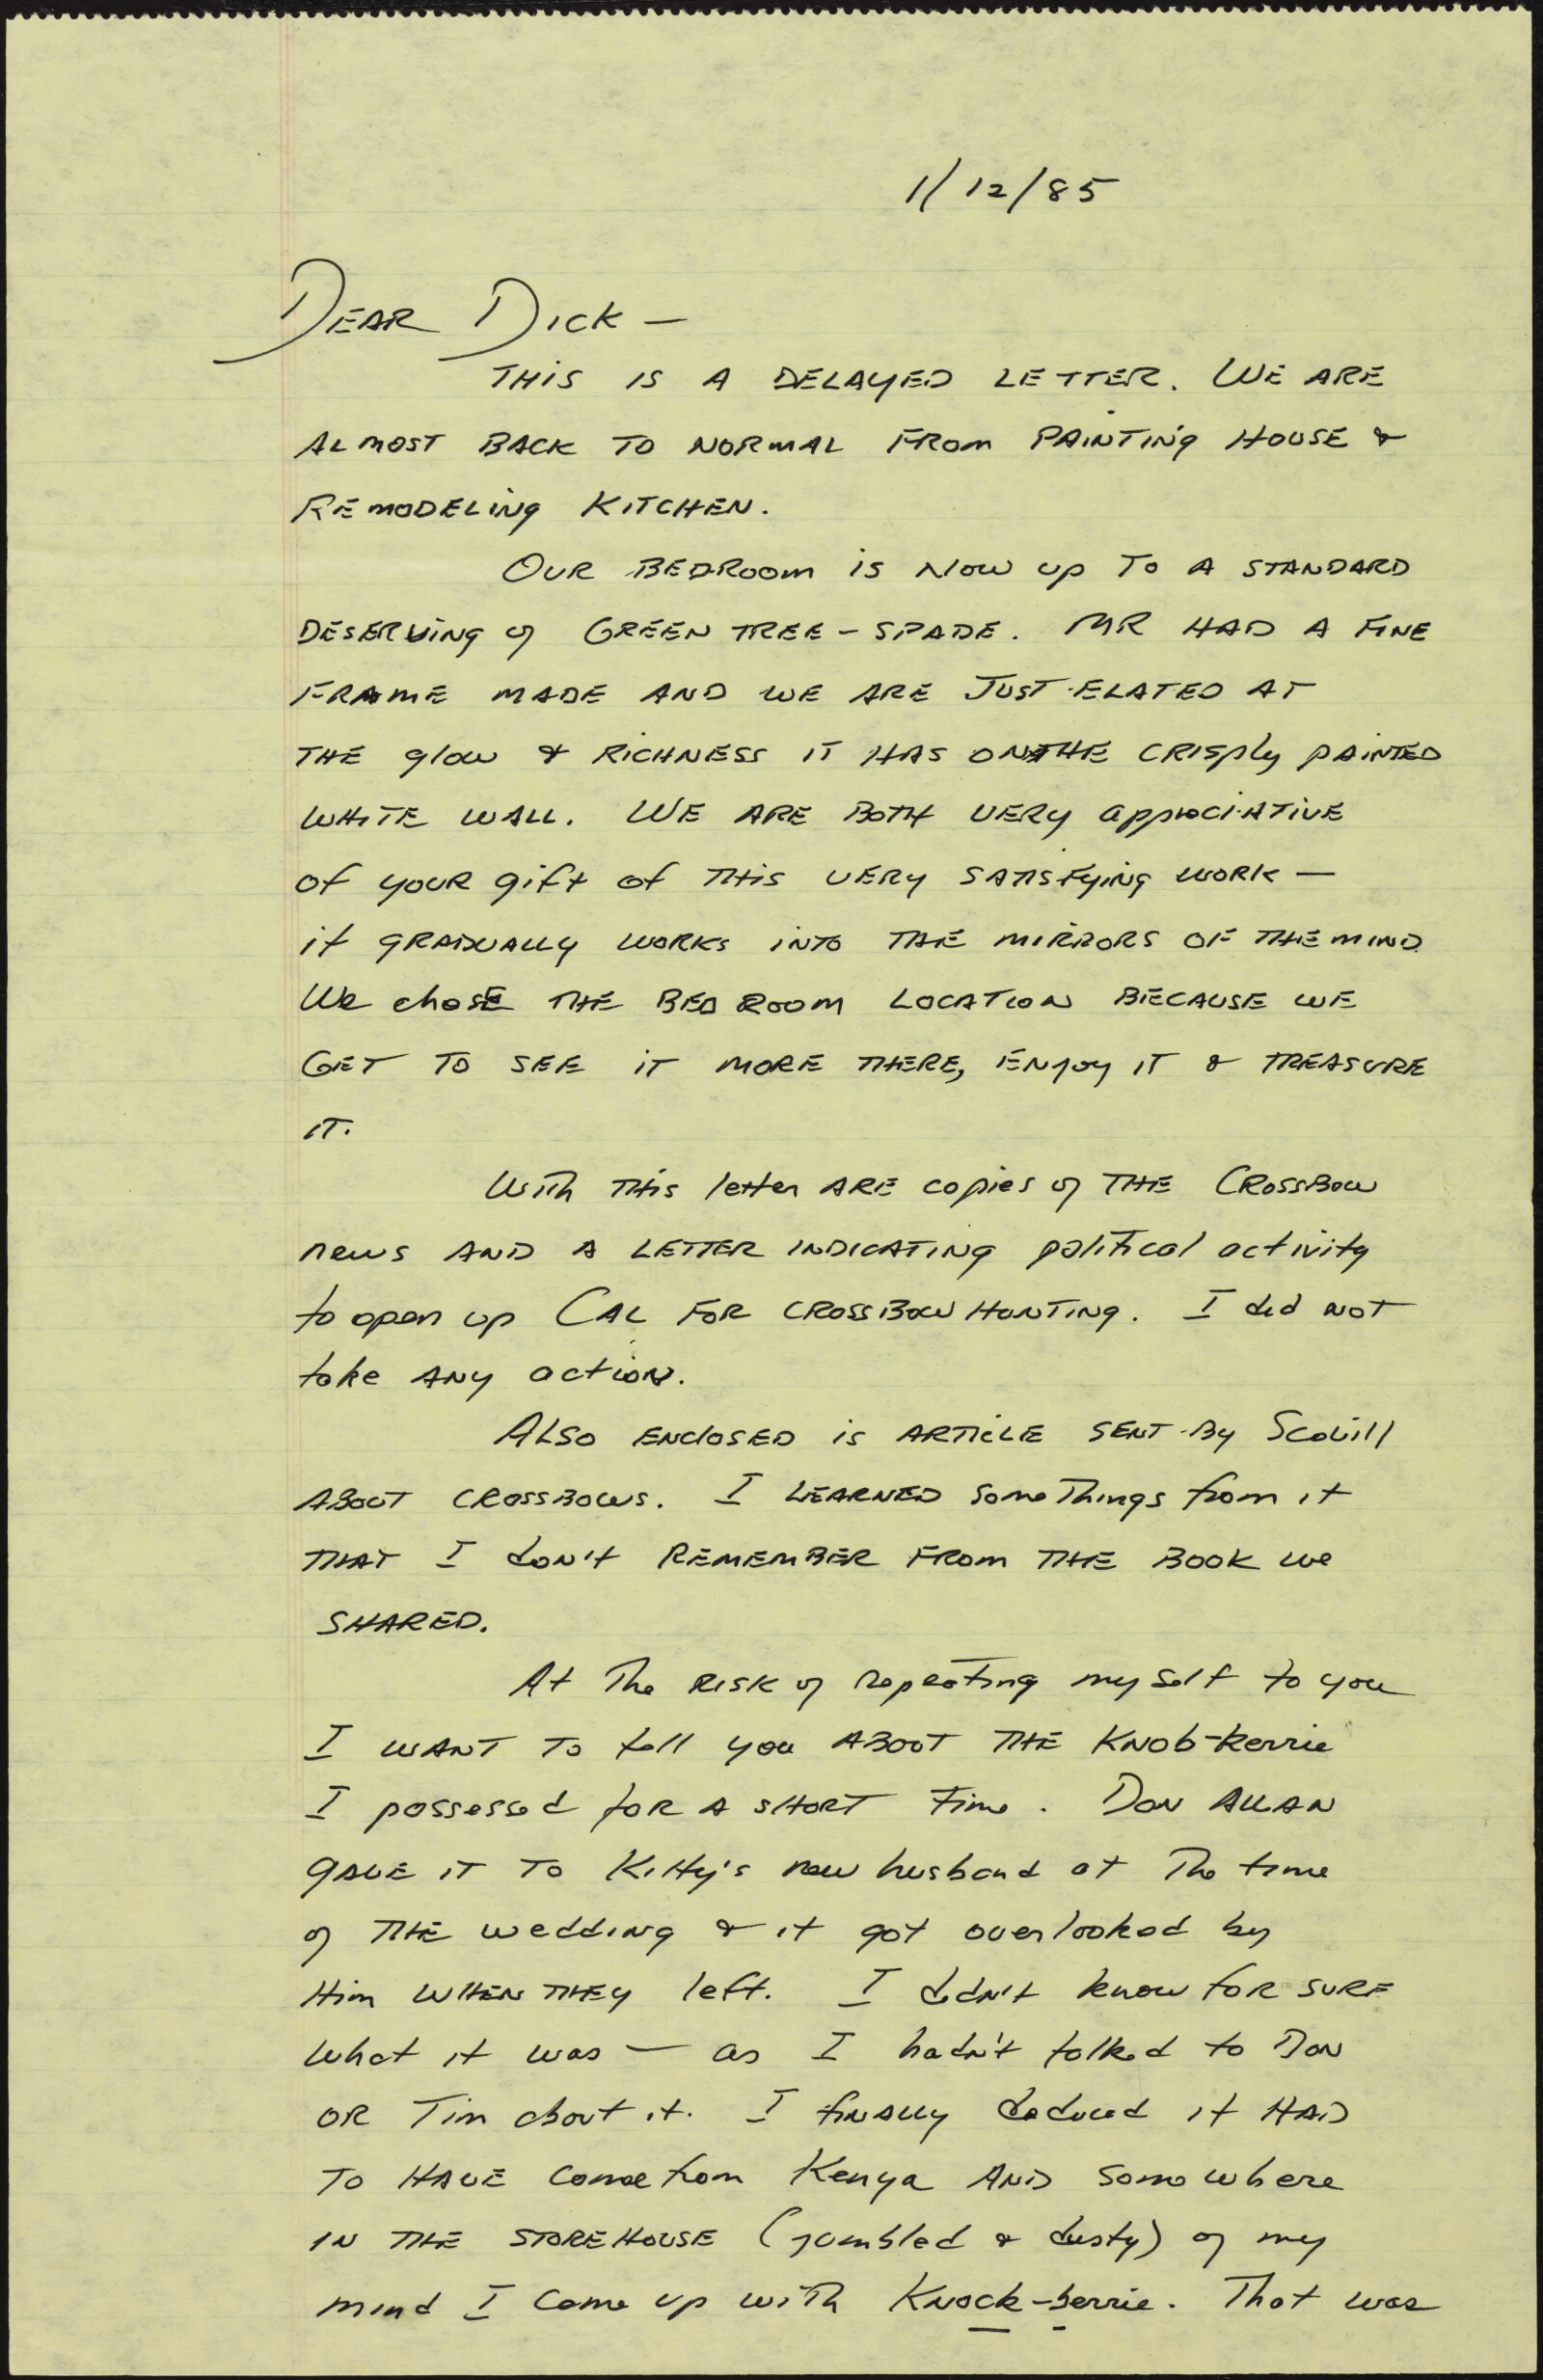 1/12/85
DEAR DICK —
THIS IS A DELAYED LETTER. WE ARE
ALMOST BACK TO NORMAL FROM PAINTING HOUSE &
REMODELING KITCHEN.
OUR BEDROOM IS NOW UP TO A STANDARD
DESERVING of GREEN TREE - SPADE. MR HAD A FINE
FRAME MADE AND WE ARE JUST ELATED AT
THE glow & RICHNESS IT HAS ON THE CRISPLY PAINTED
WHITE WALL. WE ARE BOTH VERY appreciATIVE
of your gift of THIS VERY SATISFYING WORK —
it GRADUALLY WORKS INTO THE MIRRORS OF THE MIND
We chose THE BED ROOM LOCATION BECAUSE WE
GET TO SEE IT MORE THERE, ENJOY IT & TREASURE
IT.
With THIS letter ARE copies of THE CROSSBOW
news AND A LETTER INDICATING political activity
to open up CAL FOR CROSSBOW HUNTING. I did NOT
take ANY action.
ALSO ENCLOSED is ARTICLE SENT BY Scovill
ABOUT CROSSBOWS. I LEARNED some Things from it
THAT I don't REMEMBER FROM THE BOOK we
SHARED.
At The RISK of repeating my self to you
I WANT TO tell you ABOUT THE KNOB-kerrie
I possessed FOR A SHORT Time. DON ALLAN
GAVE IT TO Kitty's new husband at The time
of THE wedding & it got overlooked by
Him WHEN THEY left. I didn't know FOR SURE
what it was — as I hadn't talked to DON
OR Tim about it. I FINALLY deduced it HAD
TO HAVE come from Kenya AND somewhere
IN THE STOREHOUSE (jumbled & dusty) of my
mind I came up with KNOCK-berrie. That was